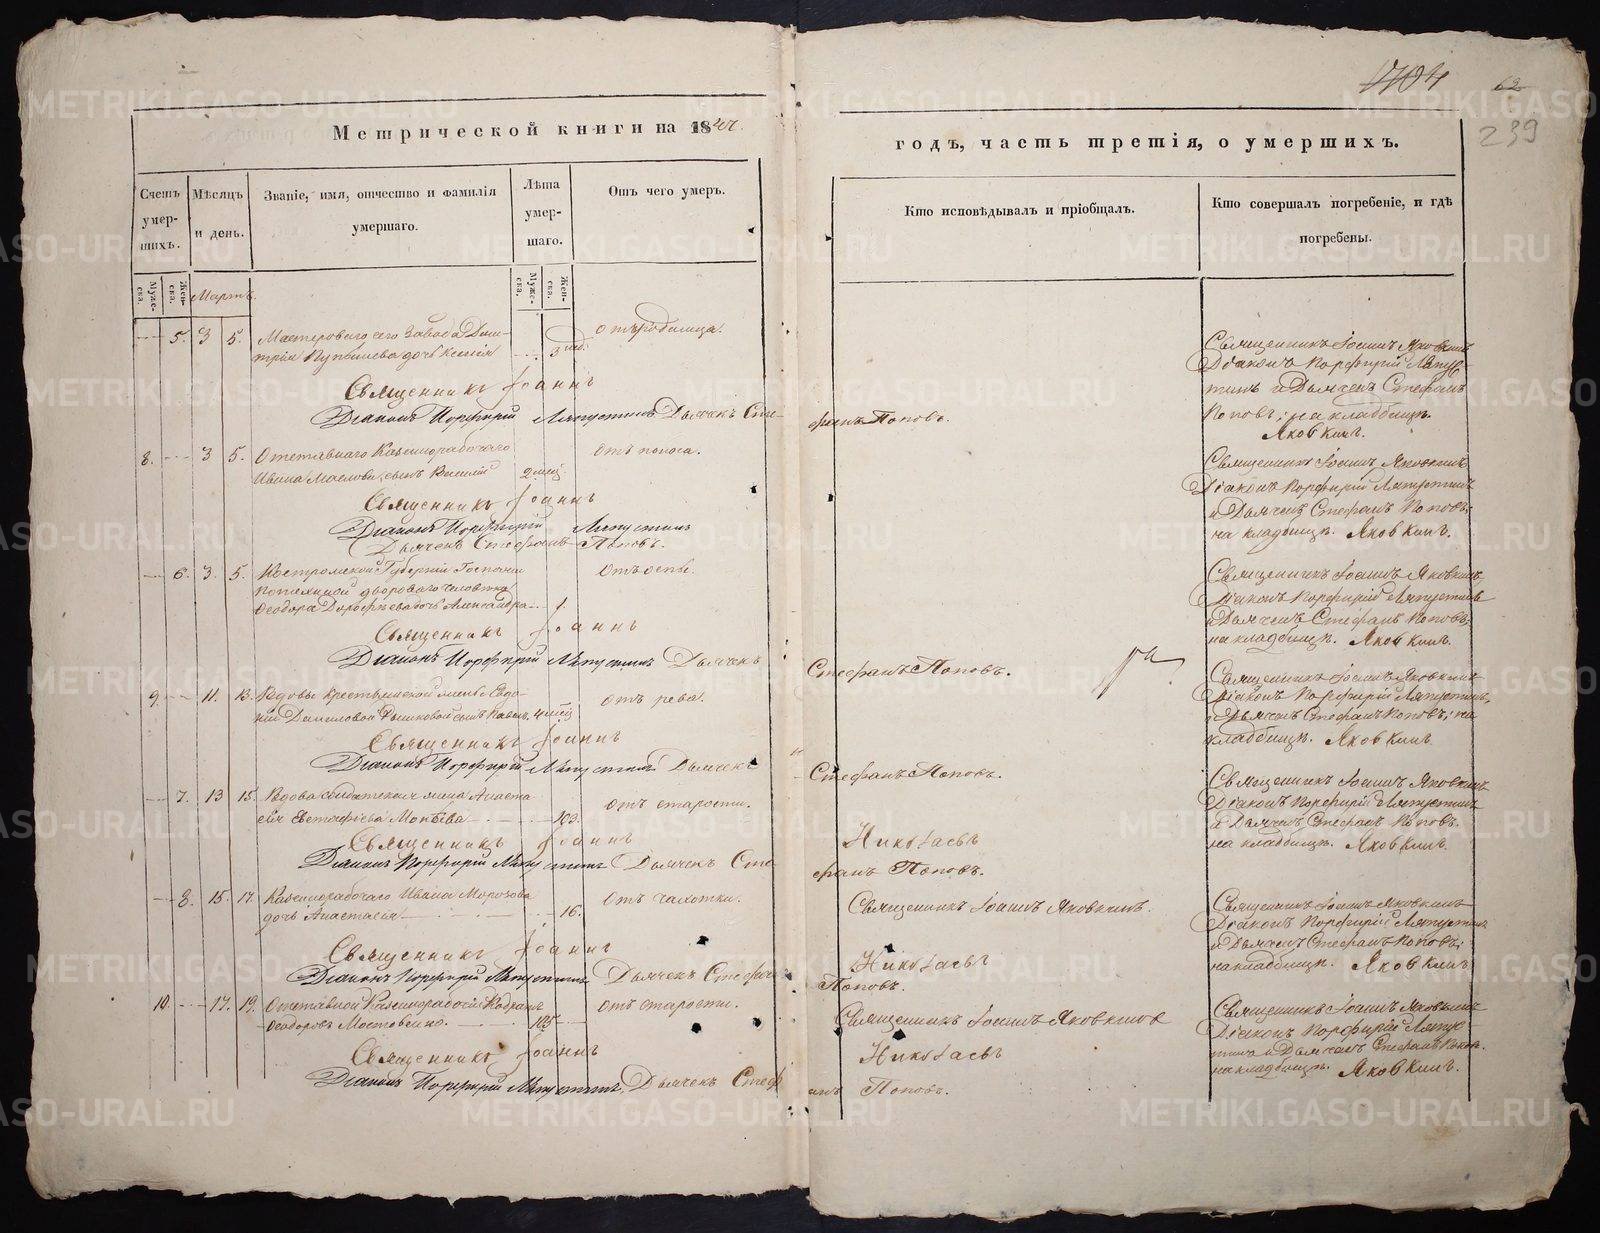 1704
62
239
Метрической книги на 184
годъ, часть третія, о умершихъ.
Счетъ умер-шихъ.
Мѣсяцъ и день.
Званіе, имя, отчество и фамилія умершаго.
Лѣта умер-шаго.
Отъ чего умеръ.
Кто исповѣдывалъ и пріобщалъ.
Кто совершалъ погребеніе, и гдѣ погребены.
Муже-ска.
Жен-ска.
Муже-ска.
Жен-ска.
Мартъ.
5. 3 5. Мастероваго сего Завода Дми-
трія дочь 3 нед.
Отъ родимца.
Священникъ Іоаннъ Яковкинъ
Діаконъ Порфирій Ляпус-
тинъ и Дьячекъ Стефанъ
Поповъ; на кладбищѣ.
Яковкинъ.
Священникъ Іоаннъ
Діаконъ Порфирій Ляпустинъ Дьячекъ Сте-
фанъ Поповъ.
8. 3 5. Отставнаго Казеннорабочаго
Ивана Маслова сынъ Василій 2 мѣс.
Отъ поноса.
Священникъ Іоаннъ Яковкинъ
Діаконъ Порфирій Ляпустинъ
и Дьячекъ Стефанъ Поповъ;
на кладбищѣ. Яковкинъ.
Священникъ Іоаннъ
Діаконъ Порфирій Ляпустинъ
Дьячекъ Стефанъ Поповъ.
6. 3. 5. Костромской Губерніи Госпожи
двороваго человѣка
Ѳеодора Дорофѣева дочь Александра 1.
Отъ оспы.
Священникъ Іоаннъ Яковкинъ,
Діаконъ Порфирій Ляпустинъ
и Дьячекъ Стефанъ Поповъ;
на кладбищѣ. Яковкинъ.
Священникъ Іоаннъ
Діаконъ Порфирій Ляпустинъ Дьячекъ
Стефанъ Поповъ.
9. 11. 13. Вдовы крестьянской жены Евдо-
кіи Даниловой сынъ Павелъ. 4 мѣс
Отъ рева.
Священникъ Іоаннъ Яковкинъ
Діаконъ Порфирій Ляпустинъ,
и Дьячекъ Стефанъ Поповъ; на
кладбищѣ. Яковкинъ.
Священникъ Іоаннъ
Діаконъ Порфирій Ляпустинъ Дьячекъ
Стефанъ Поповъ.
7. 13 15. Вдова солдатская жена Анаста-
сія Евстафіева 103.
Отъ старости.
Священникъ Іоаннъ Яковкинъ
Діаконъ Порфирій Ляпустинъ
и Дьячекъ Стефанъ Поповъ.
на кладбищѣ. Яковкинъ.
Священникъ Іоаннъ Николаевъ
Діаконъ Порфирій Ляпустинъ Дьячекъ Сте
фанъ Поповъ.
8. 15. 17. Казеннорабочаго Ивана Морозова
дочь Анастасія 16.
Отъ чахотки.
Священникъ Іоаннъ Яковкинъ.
Священникъ Іоаннъ Яковкинъ
Діаконъ Порфирій Ляпустинъ
и Дьячекъ Стефанъ Поповъ;
на кладбищѣ. Яковкинъ
Священникъ Іоаннъ Николаевъ
Діаконъ Порфирій Ляпустинъ Дьячекъ Стефанъ
Поповъ.
10. 17. 19. Отставной Казеннорабочій
Ѳеодоровъ 105
Отъ старости.
Священникъ Іоаннъ Яковкинъ
Священникъ Іоаннъ Яковкинъ
Діаконъ Порфирій Ляпус
тинъ и Дьячекъ Стефанъ Попов.
на кладбищѣ. Яковкинъ.
Священникъ Іоаннъ Николаевъ
Діаконъ Порфирій Ляпустинъ, Дьячекъ Стеф
анъ Поповъ.
METRIKI.GASO-URAL.RU